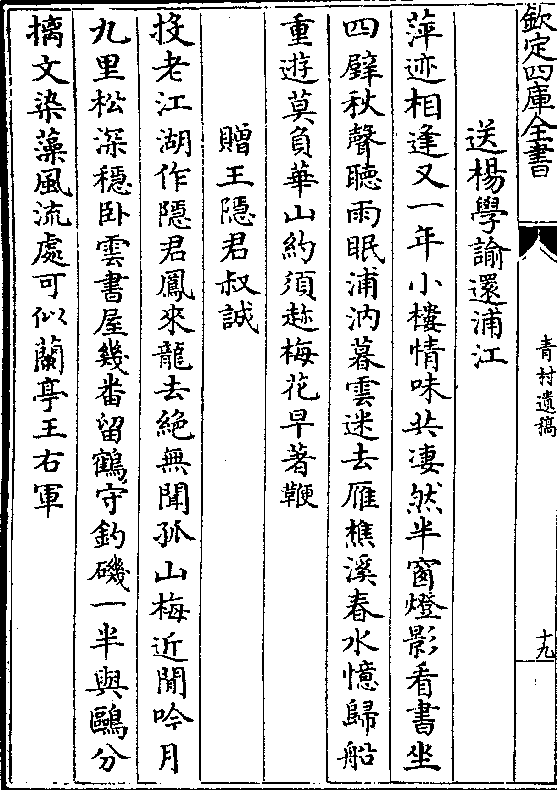 欽定四庫全書
青村遺稿
十九
送楊學諭還浦江
萍迹相逢又一年小樓情味共淒然半窗燈影看書坐
四壁秋聲聽雨眠浦汭暮雲迷去雁樵溪春水憶歸船
重遊莫負華山約須趂梅花早著鞭
贈王隱君叔誠
投老江湖作隱君鳳來龍去絶無聞孤山梅近閒吟月
九里松深穩卧雲書屋幾畨留鶴守釣磯一半與鷗分
摛文染藻風流處可似蘭亭王右軍